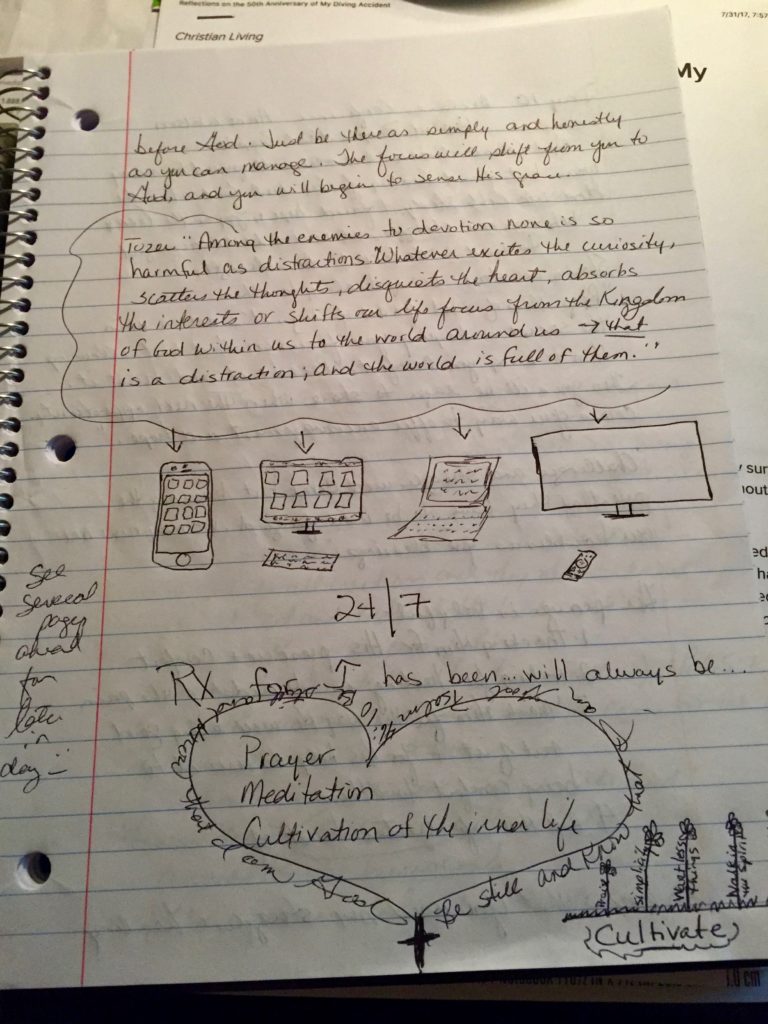 Reflections on the 50th Anniversary of My Diving Accident
7/31/17, 7:57
Christian Living
My
before God. Just be there as simply and honestly
as you can manage. The focus will shift from you to
God, and you will begin to sense His grace.
Tozer "Among the enemies to devotion none is so
harmful as distractions. Whatever excites the curiosity,
scatters the thoughts, disquiets the heart, absorbs
the interests or shifts our life focus from the Kingdom
of God within us to the world around us → that
is a distraction; and the world is full of them."
24/7
See
several
pages
ahead
for
later
in
day
Rx for ↑ has been... will always be...
Be still and know that I am God
Psalm 46:10
Be still and know that I am God
Prayer
Meditation
Cultivation of the inner life
simplicity
Want less
things
Walk in
Spirit
Cultivate
sur
out
1.0 cm